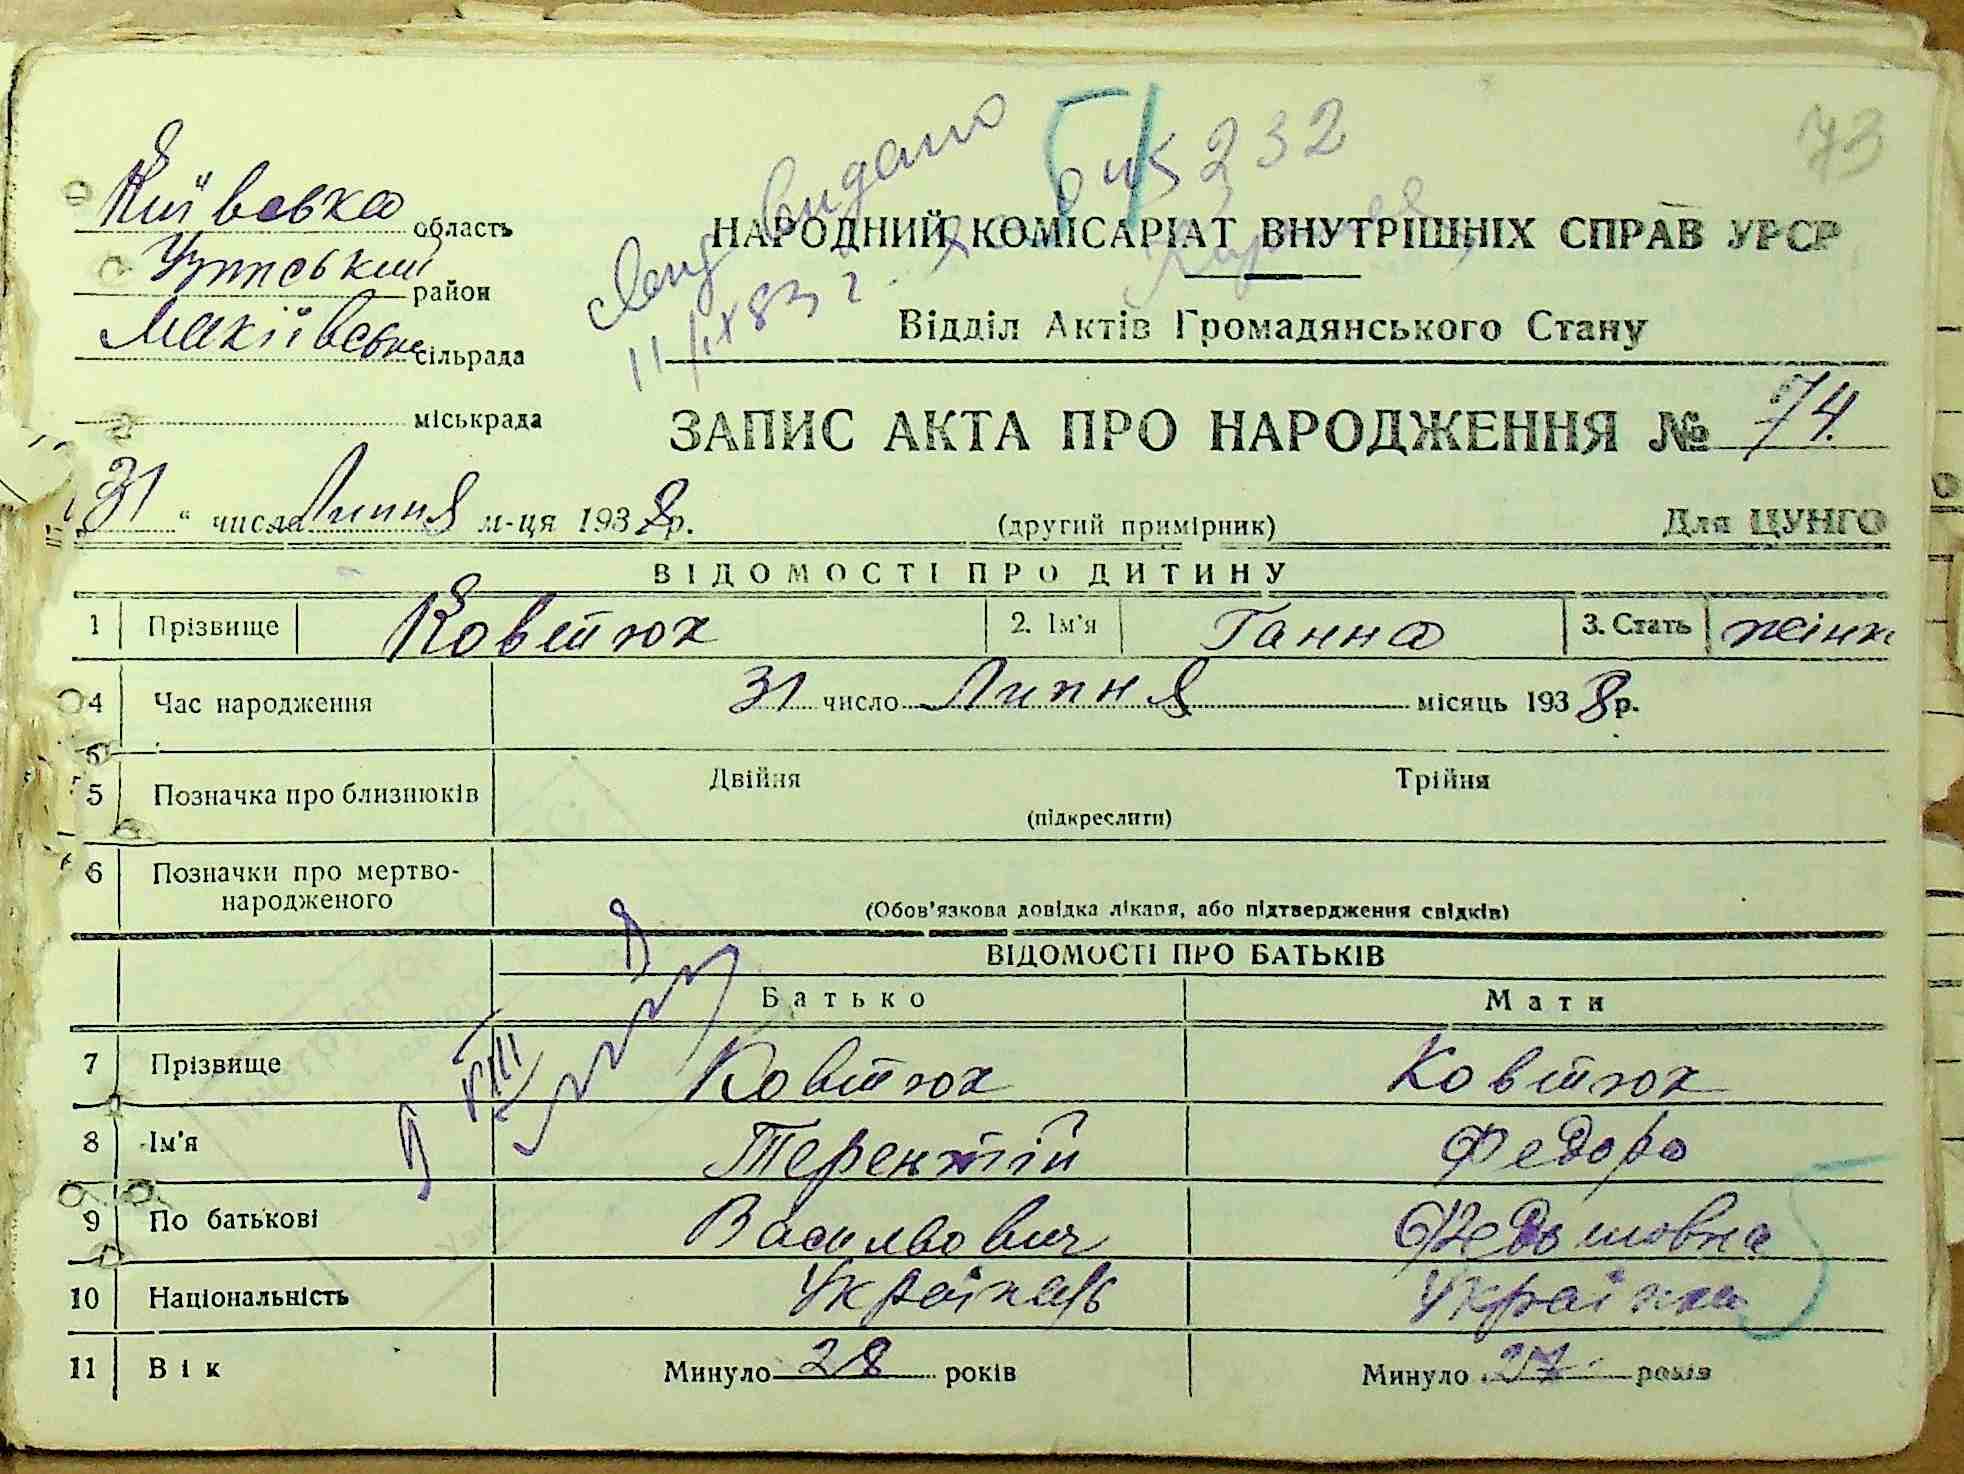 73
Київська область
Узинський район
Макіївська сільрада
міськрада
видано
11/IX 83 г.
232
НАРОДНИЙ КОМІСАРІАТ ВНУТРІШНІХ СПРАВ УРСР
Відділ Актів Громадянського Стану
ЗАПИС АКТА ПРО НАРОДЖЕННЯ № 74.
31 " числа Липня м-ця 1938 р.
(другий примірник)
Для ЦУНГО
ВІДОМОСТІ ПРО ДИТИНУ
1 Прізвище Ковтюх 2. Ім'я Ганна 3. Стать жінк
4 Час народження 31 число Липня місяць 1938 р.
5 Позначка про близнюків Двійня Трійня
(підкреслити)
6 Позначки про мертво-
народженого
(Обов'язкова довідка лікаря, або підтвердження свідків)
ВІДОМОСТІ ПРО БАТЬКІВ
Батько Мати
7 Прізвище Ковтюх Ковтюх
8 Ім'я Терентій Федора
9 По батькові Васильович
10 Національність Українець Українка
11 Вік Минуло 28 років Минуло 27 років